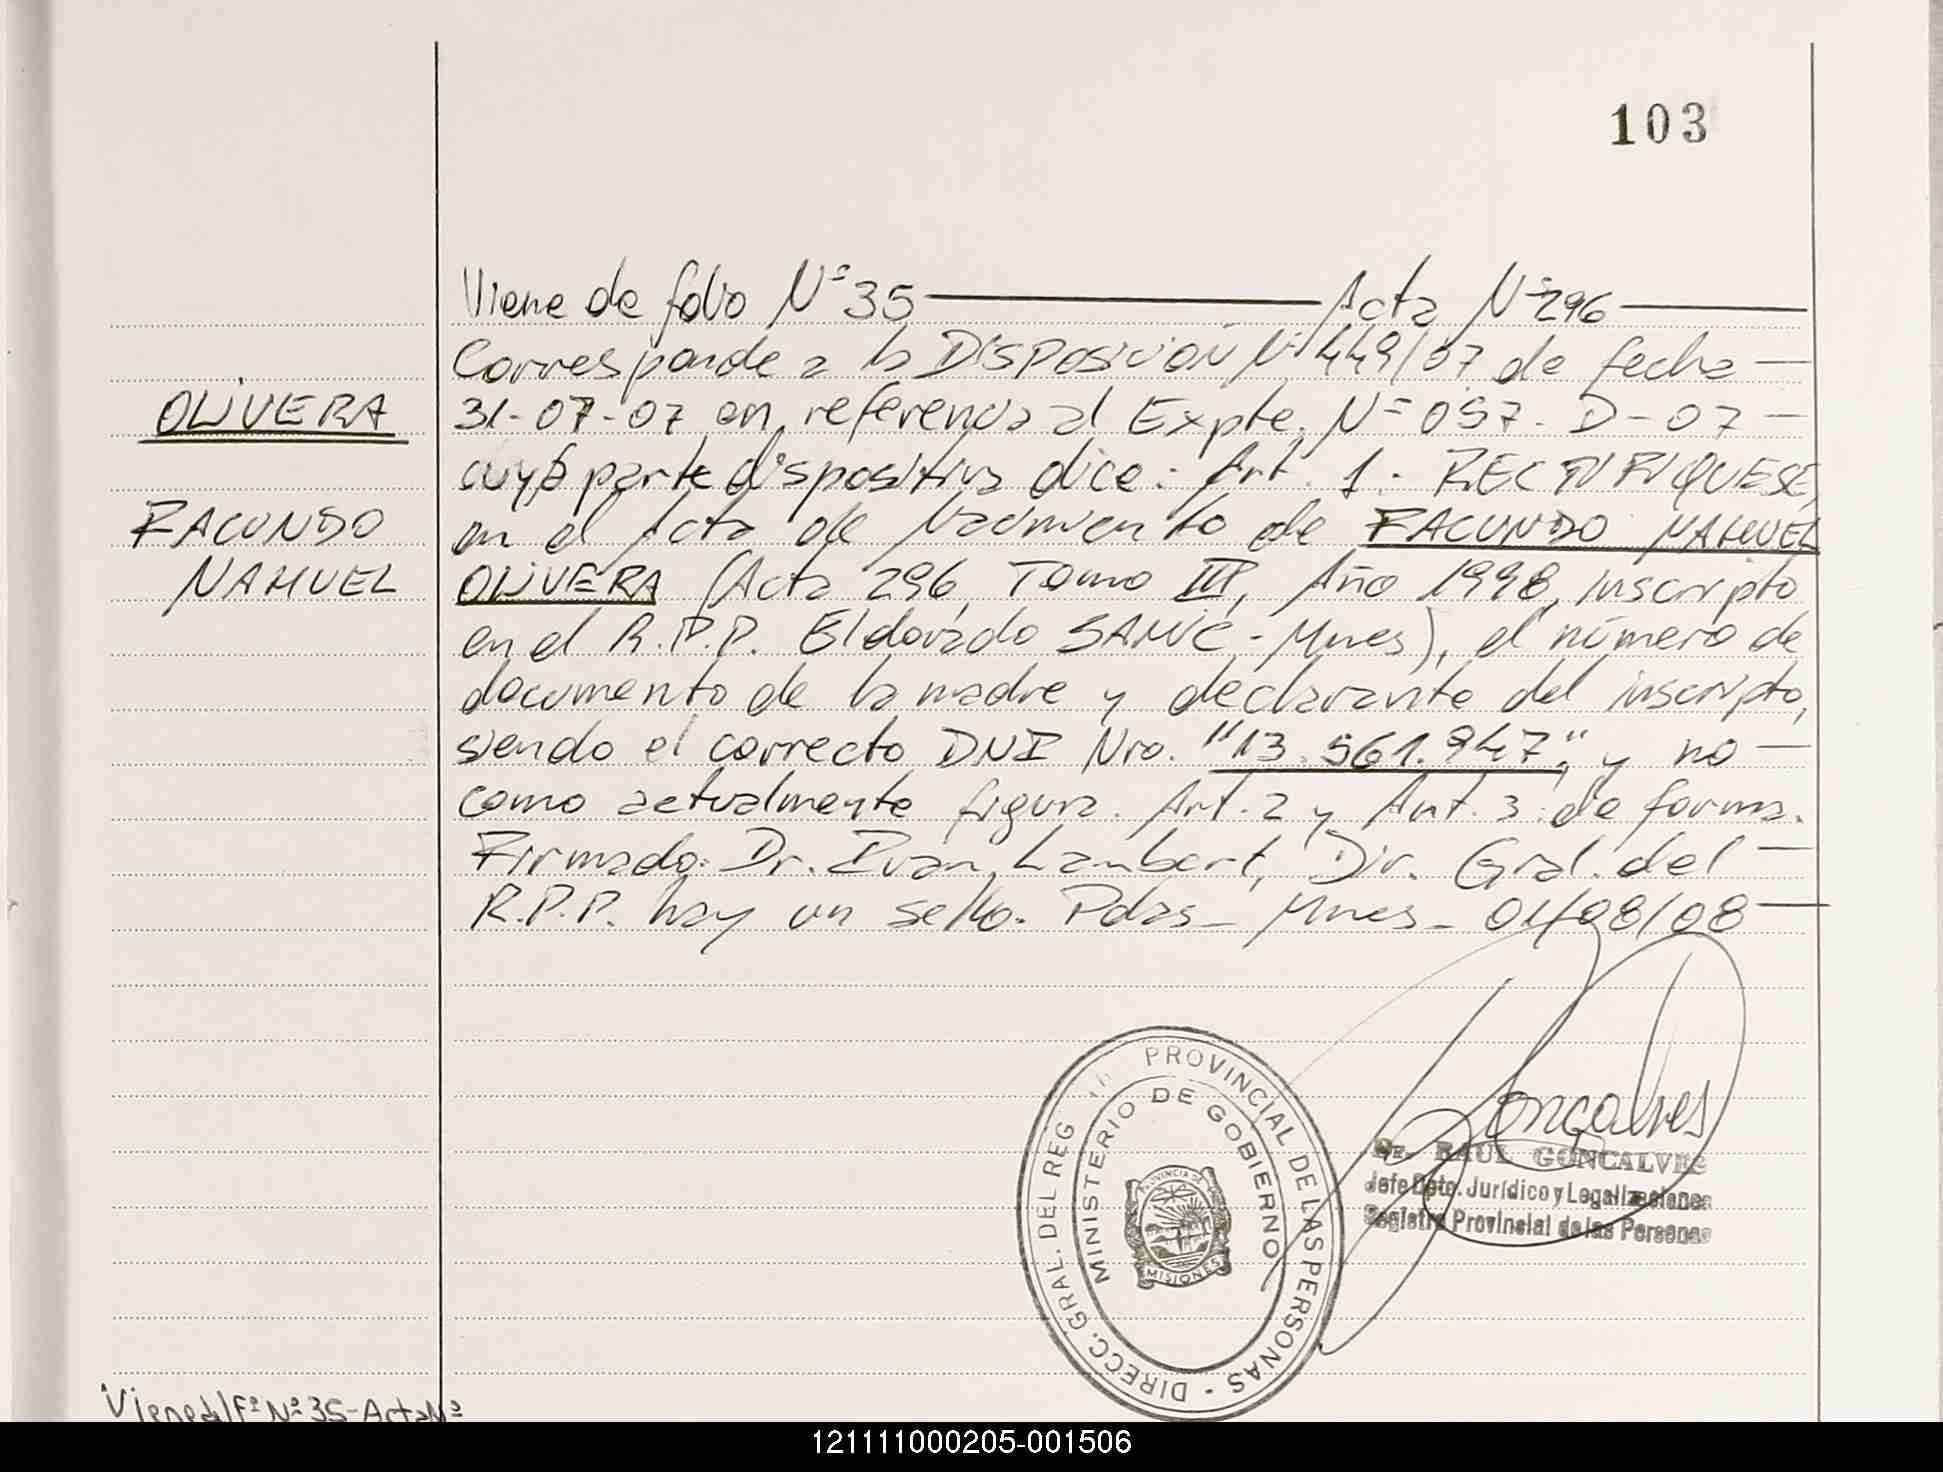 103
Viene de folio Nº 35 — Acta Nº 296 —
Corresponde a la DISPOSICION Nº 449/07 de fecha —
OLIVERA
31-07-07 en referencia al Expte. Nº 057-D-07 —
cuya parte dispositiva dice: Art. 1: RECTIFIQUESE,
FACUNDO
en el Acta de Nacimiento de FACUNDO NAHUEL
NAHUEL
OLIVERA (Acta 296, Tomo III, Año 1998, inscripto
en el R.P.P. Eldorado SANVC - Mnes), el número de
documento de la madre y declarante del inscripto,
siendo el correcto DNI Nro. "13.561.947", y no —
como actualmente figura. Art. 2 y Art. 3: de forma.
Firmado: Dr. Ivan Lambert, Dir. Gral. del —
R.P.P. hay un sello. Pdas - Mnes - 01/08/08 —
DIRECC. GRAL. DEL REG PROVINCIAL DE LAS PERSONAS -
MINISTERIO DE GOBIERNO
PROVINCIA DE
MISIONES
Goncalves
Dr. RAUL GONCALVES
Jefe Dpto. Jurídico y Legalizaciones
Registro Provincial de las Personas
Viene del Fº Nº 35-Acta Nº
121111000205-001506